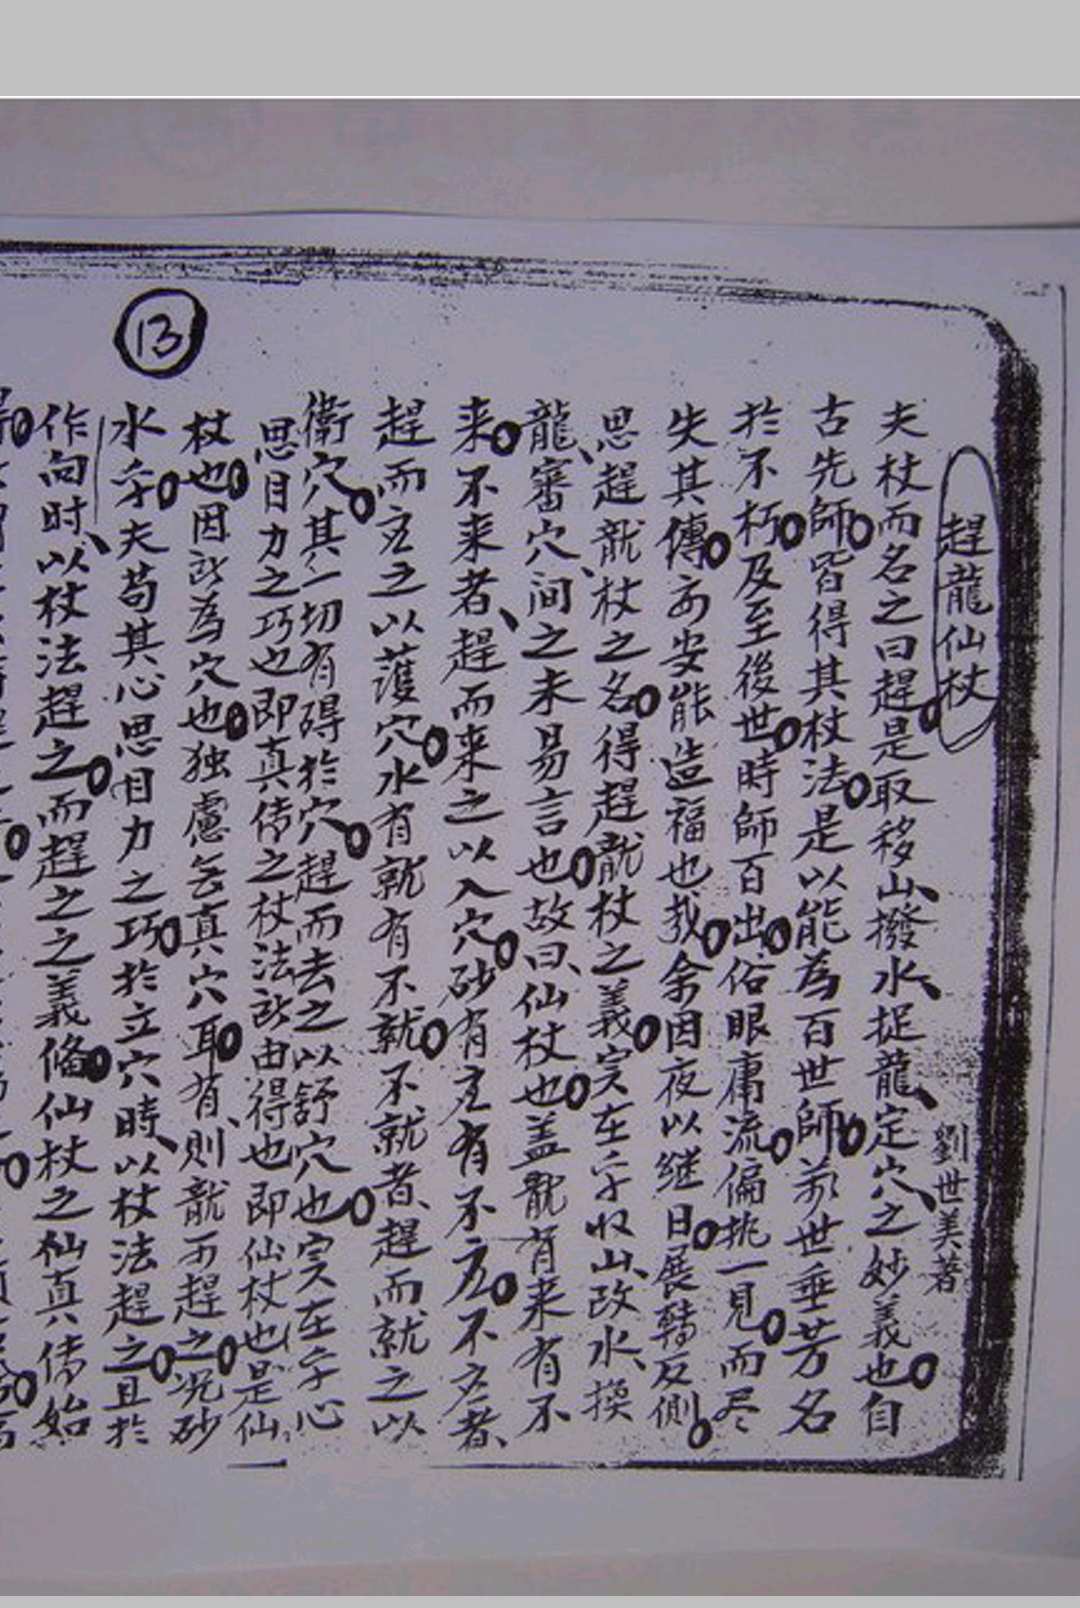 趕龍仙杖
劉世美著
夫杖而名之曰趕是取移山、撥水、捉龍、定穴、之妙義也自
古先師皆得其杖法是以能為百世師前世垂芳名
於不朽及至後世時師百出俗眼庸流偏执一見而尽
失其傳安能造福也哉余因夜以继日展轉反側
思趕龍杖之名得趕龍杖之義实在乎收山、改水、操
龍、審穴、间之未易言也故曰、仙杖也盖龍有来有不
来不来者、趕而来之以入穴砂有立有不立不立者、
趕而立之以護穴水有就有不就不就者、趕而就之以
衛穴其一切有碍於穴趕而去之以舒穴也实在乎心
思目力之巧也即真传之杖法所由得也即仙杖也是仙
杖也因此為穴也独慮無真穴耳有、則龍可趕之况砂
水乎夫苟其心思目力之巧於立穴時、以杖法趕之且於
作向时、以杖法趕之而趕之之義俻仙杖之仙真传始
13